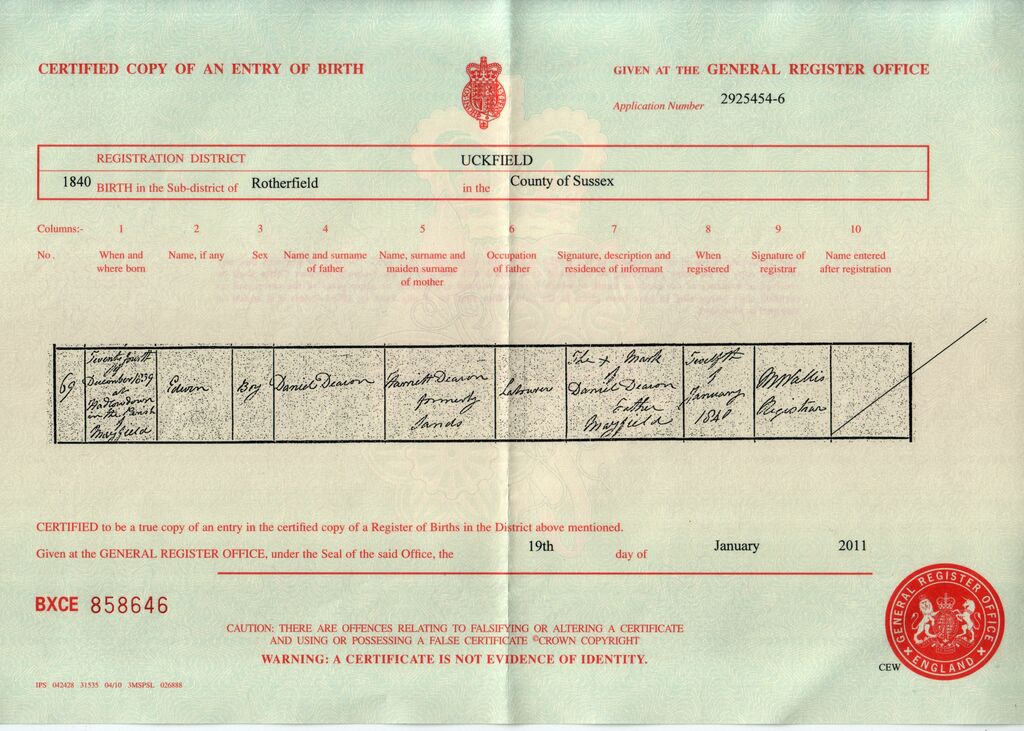 CERTIFIED COPY OF AN ENTRY OF BIRTH
GIVEN AT THE GENERAL REGISTER OFFICE
Application Number 2925454-6
REGISTRATION DISTRICT UCKFIELD
1840 BIRTH in the Sub-district of Rotherfield in the County of Sussex
Columns:- 1 2 3 4 5 6 7 8 9 10
No. When and where born
Name, if any
Sex
Name and surname of father
Name, surname and maiden surname of mother
Occupation of father
Signature, description and residence of informant
When registered
Signature of registrar
Name entered after registration
69
Twenty fourth
of
December 1839
at
Hadlowdown
in the Parish
of
Mayfield
Edwin
Boy
Daniel Deacon
Harriett Deacon
formerly
Sands
Labourer
The x Mark
of
Daniel Deacon
Father
Mayfield
Twelfth
of
January
1840
Wallis
Registrar
CERTIFIED to be a true copy of an entry in the certified copy of a Register of Births in the District above mentioned.
Given at the GENERAL REGISTER OFFICE, under the Seal of the said Office, the 19th day of January 2011
BXCE 858646
CAUTION: THERE ARE OFFENCES RELATING TO FALSIFYING OR ALTERING A CERTIFICATE
AND USING OR POSSESSING A FALSE CERTIFICATE ©CROWN COPYRIGHT
WARNING: A CERTIFICATE IS NOT EVIDENCE OF IDENTITY.
GENERAL REGISTER OFFICE
ENGLAND
CEW
IPS 042428 31535 04/10 3MSPSL 026888